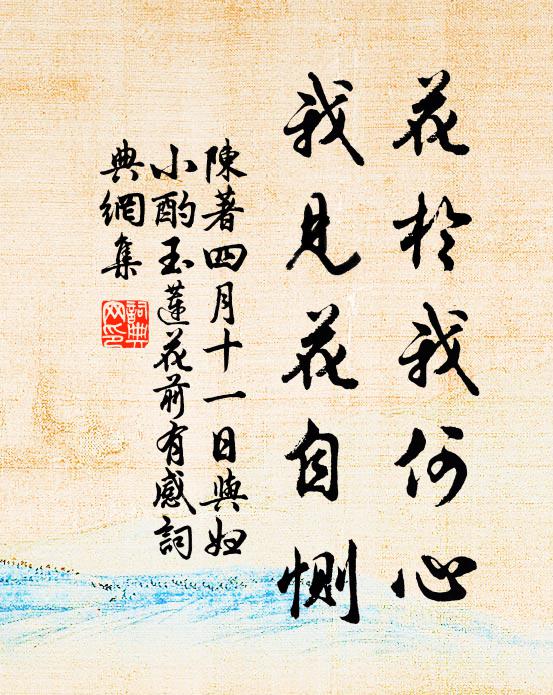 花於我何心
我見花自惻
陳著四月十一日與妇
小酌玉蓮花前有感詞
典網集
詞典網印